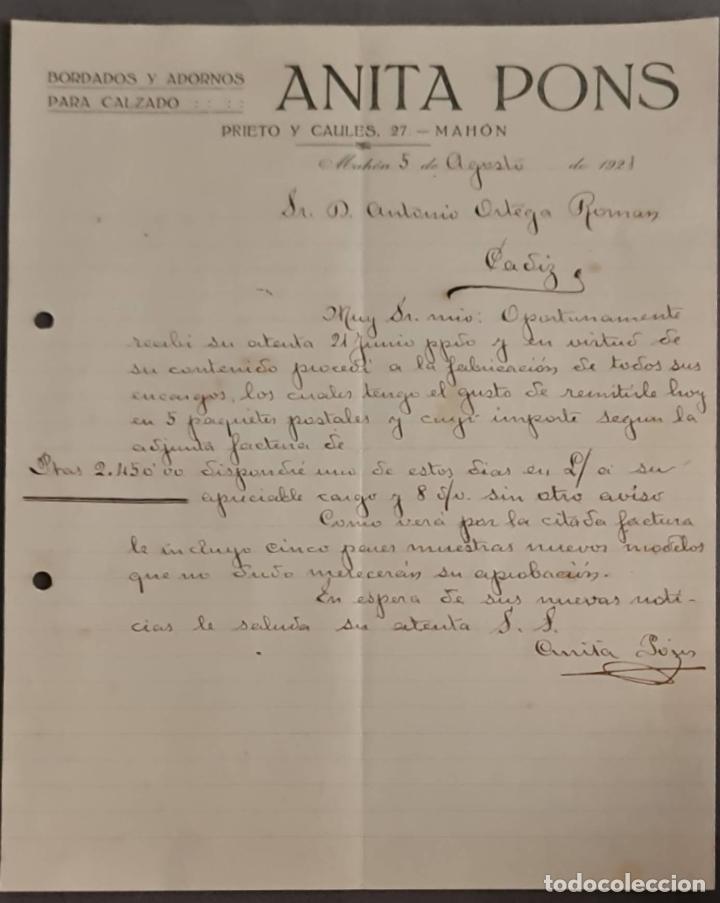 BORDADOS Y ADORNOS
PARA CALZADO : : : :
ANITA PONS
PRIETO Y CAULES, 27 – MAHÓN
Mahón 5 de Agosto de 1921
Sr. D. Antonio Ortega Roman
Cadiz
Muy Sr. mio: Oportunamente
recibi su atenta 21 Junio ppdo y en virtud de
su contenido procedi a la fabricación de todos sus
encargos, los cuales tengo el gusto de remitirle hoy
en 5 paquetes postales y cuyo importe segun la
adjunta factura de
Ptas 2.450'00 dispondré uno de estos dias en L/ a su
apreciable cargo y 8 d/v. sin otro aviso
Como verá por la citada factura
le incluyo cinco pares muestras nuevos modelos
que no dudo merecerán su aprobación.
En espera de sus nuevas noti-
cias le saluda su atenta S. S.
Anita Pons
todocoleccion